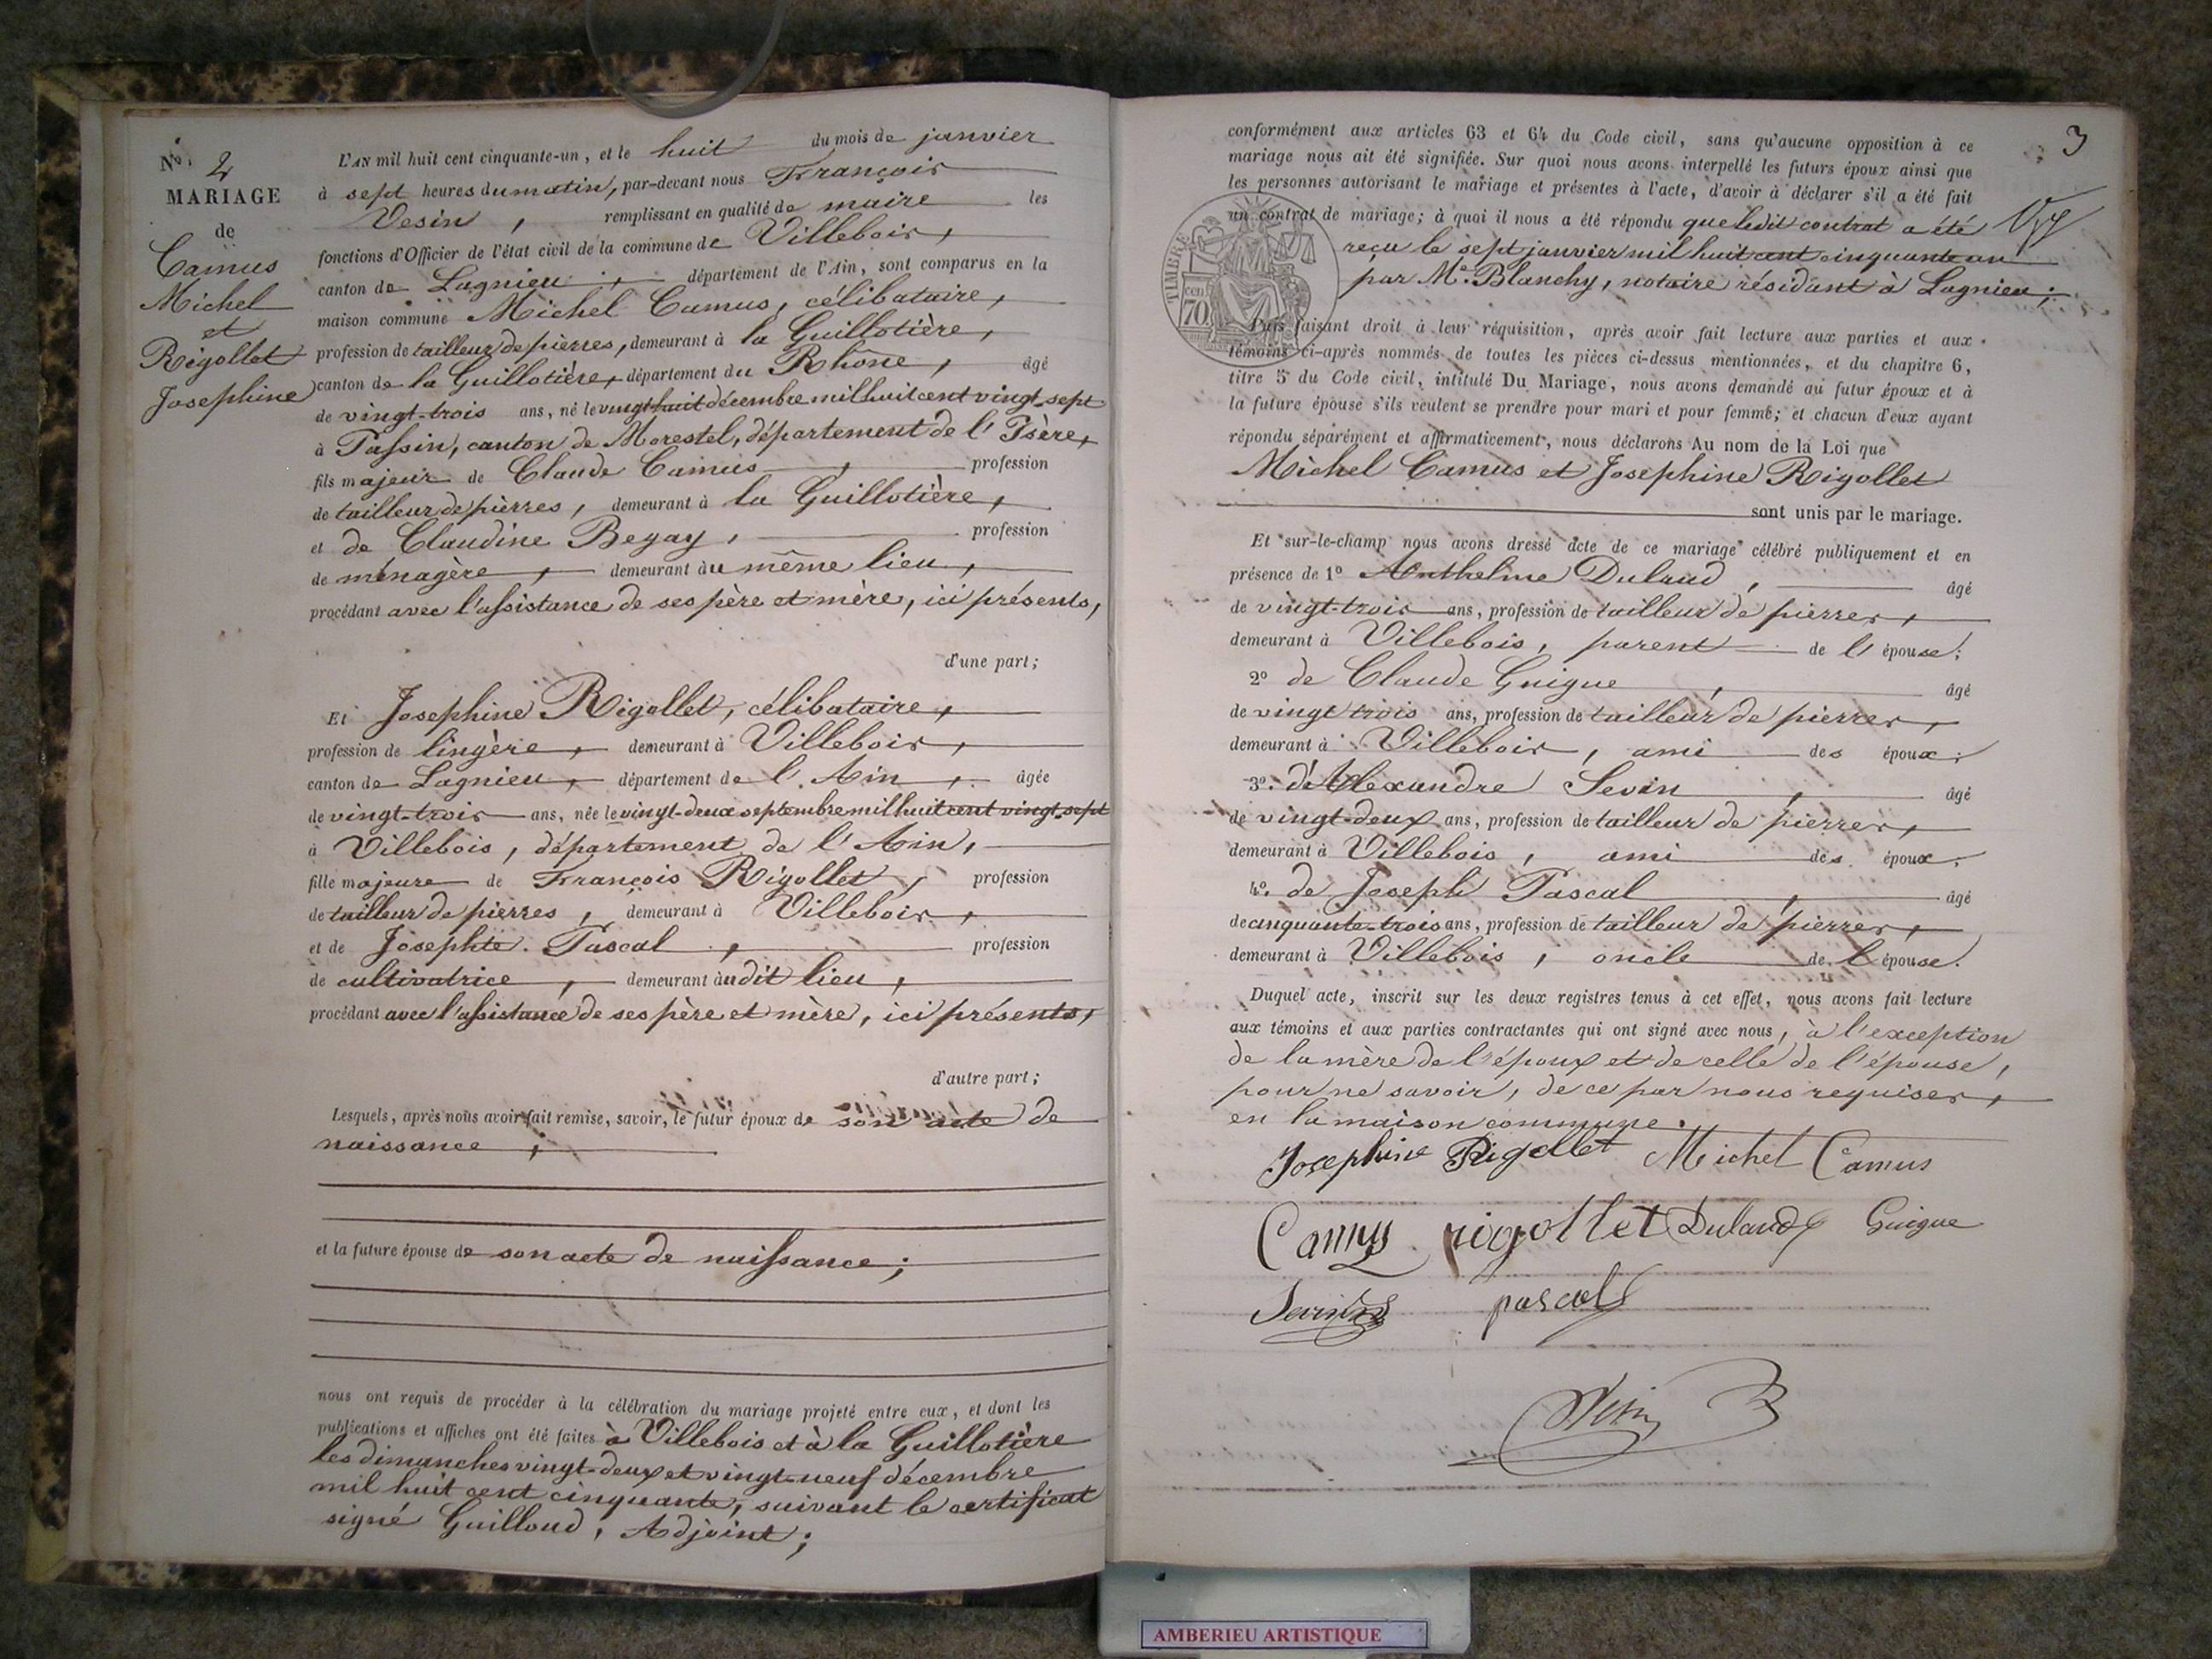 N.° 2
MARIAGE
de
Camus
Michel
et
Rigollet
Josephine
L'AN mil huit cent cinquante-un, et le huit du mois de janvier
à sept heures du matin, par-devant nous François
Vesin, remplissant en qualité de maire les
fonctions d'Officier de l'état civil de la commune de Villebois,
canton de Lagnieu, département de l'Ain, sont comparus en la
maison commune Michel Camus, célibataire,
profession de tailleur de pierres, demeurant à la Guillotière,
canton de la Guillotière, département du Rhône, âgé
de vingt-trois ans, né le vingt-huit décembre mil huit cent vingt-sept
à Passin, canton de Morestel, département de l'Isère,
fils majeur de Claude Camus, profession
de tailleur de pierres, demeurant à la Guillotière,
et de Claudine Begay, profession
de ménagère, demeurant au même lieu,
procédant avec l'assistance de ses père et mère, ici présents,
d'une part;
Et Josephine Rigollet, célibataire,
profession de lingère, demeurant à Villebois,
canton de Lagnieu, département de l'Ain, âgée
de vingt-trois ans, née le vingt-deux septembre mil huit cent vingt-sept
à Villebois, département de l'Ain,
fille majeure de François Rigollet, profession
de tailleur de pierres, demeurant à Villebois,
et de Josephte Pascal, profession
de cultivatrice, demeurant audit lieu,
procédant avec l'assistance de ses père et mère, ici présents,
d'autre part;
Lesquels, après nous avoir fait remise, savoir, le futur époux de son acte de
naissance,
et la future épouse de son acte de naissance;
nous ont requis de procéder à la célébration du mariage projeté entre eux, et dont les
publications et affiches ont été faites à Villebois et à la Guillotière
les dimanches vingt-deux et vingt-neuf décembre
mil huit cent cinquante, suivant le certificat
signé Guilloud, Adjoint;
3
conformément aux articles 63 et 64 du Code civil, sans qu'aucune opposition à ce
mariage nous ait été signifiée. Sur quoi nous avons interpellé les futurs époux ainsi que
les personnes autorisant le mariage et présentes à l'acte, d'avoir à déclarer s'il a été fait
un contrat de mariage; à quoi il nous a été répondu que ledit contrat a été
reçu le sept janvier mil huit cent cinquante un
par M.e Blanchy, notaire résidant à Lagnieu;
TIMBRE
cen
70
Puis faisant droit à leur réquisition, après avoir fait lecture aux parties et aux
témoins ci-après nommés de toutes les pièces ci-dessus mentionnées, et du chapitre 6,
titre 5 du Code civil, intitulé Du Mariage, nous avons demandé au futur époux et à
la future épouse s'ils veulent se prendre pour mari et pour femme; et chacun d'eux ayant
répondu séparément et affirmativement, nous déclarons Au nom de la Loi que
Michel Camus et Josephine Rigollet
sont unis par le mariage.
Et sur-le-champ nous avons dressé acte de ce mariage célébré publiquement et en
présence de 1° Anthelme Dulaud, âgé
de vingt-trois ans, profession de tailleur de pierres,
demeurant à Villebois, parent de l'épouse;
2° de Claude Guigue, âgé
de vingt trois ans, profession de tailleur de pierres,
demeurant à Villebois, ami des époux;
3°. d'Alexandre Sevin, âgé
de vingt-deux ans, profession de tailleur de pierres,
demeurant à Villebois, ami des époux;
4°. de Joseph Pascal, âgé
de cinquante-trois ans, profession de tailleur de pierres,
demeurant à Villebois, oncle de l'épouse.
Duquel acte, inscrit sur les deux registres tenus à cet effet, nous avons fait lecture
aux témoins et aux parties contractantes qui ont signé avec nous, à l'exception
de la mère de l'époux et de celle de l'épouse,
pour ne savoir, de ce par nous requises,
en la maison commune.
Josephine Rigollet Michel Camus
Camus rigollet Dulaud Guigue
Sevin pascal
Vesin
AMBERIEU ARTISTIQUE